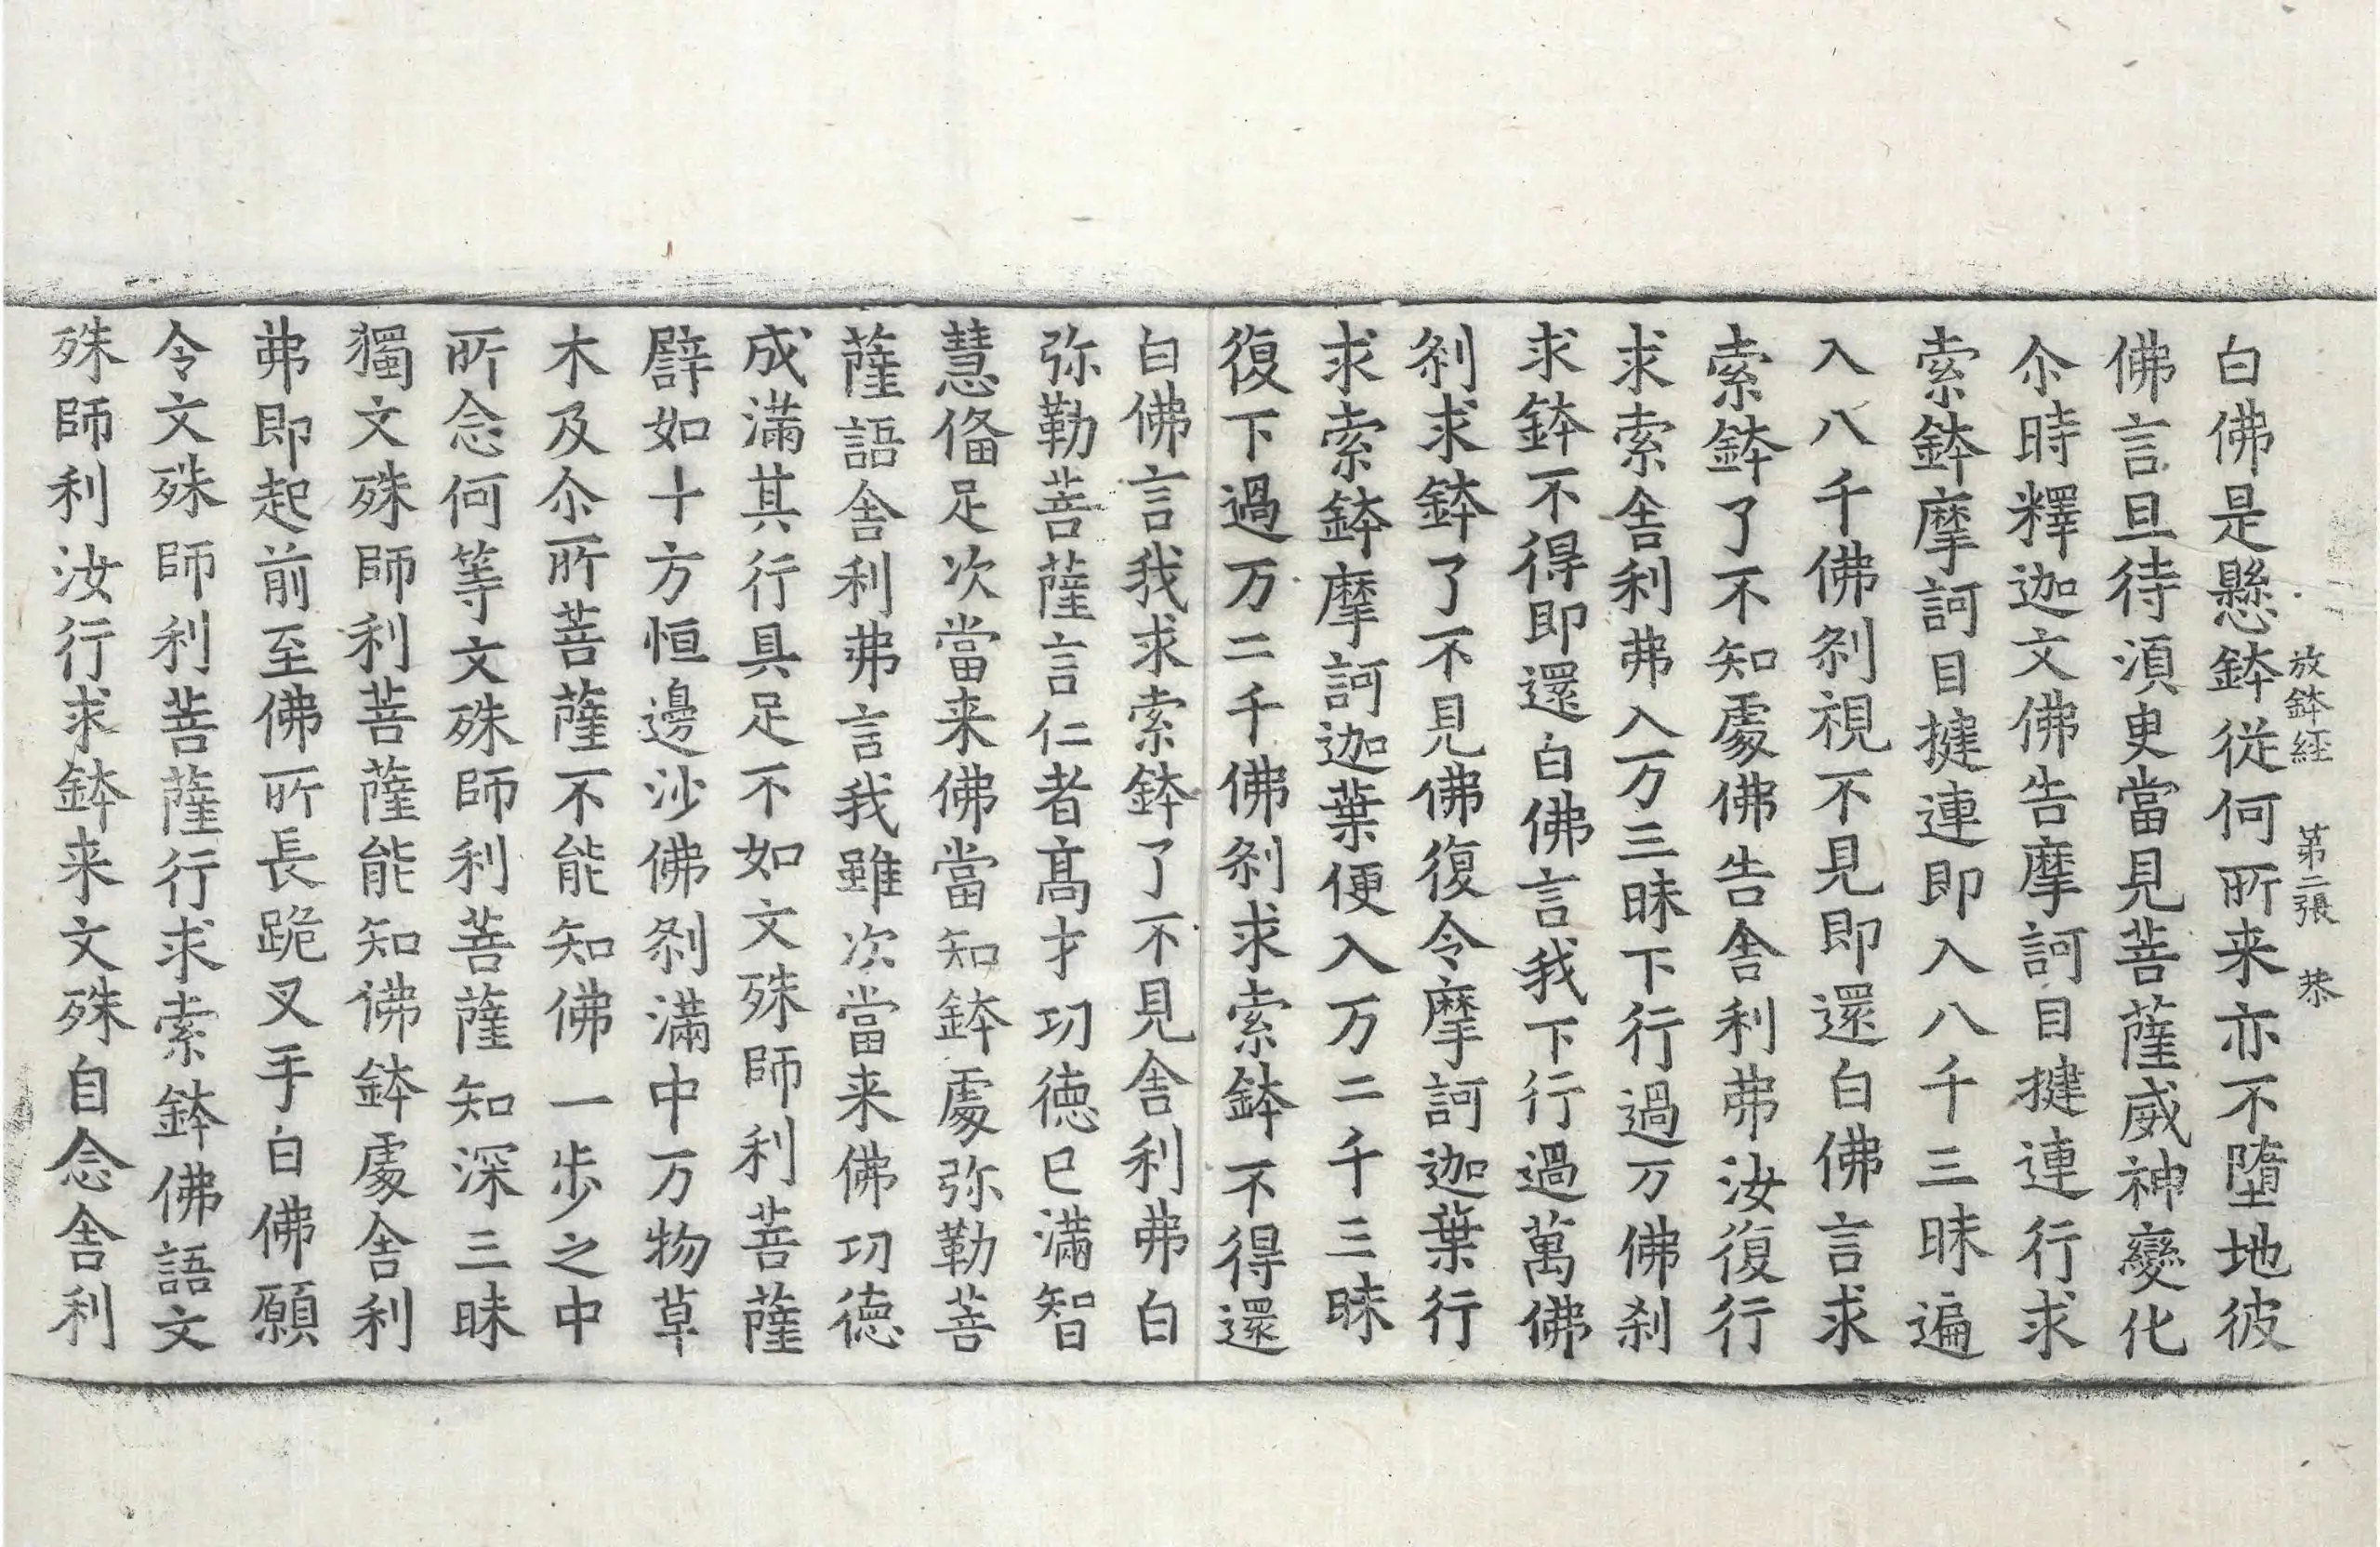 放鉢經 第二張 恭
白佛是懸鉢從何所来亦不墮地彼
佛言且待須臾當見菩薩威神變化
尒時釋迦文佛告摩訶目揵連行求
索鉢摩訶目揵連即入八千三昧遍
入八千佛刹視不見即還白佛言求
索鉢了不知處佛告舎利弗汝復行
求索舎利弗入万三昧下行過万佛刹
求鉢不得即還白佛言我下行過萬佛
刹求鉢了不見佛復令摩訶迦葉行
求索鉢摩訶迦葉便入万二千三昧
復下過万二千佛刹求索鉢不得還
白佛言我求索鉢了不見舎利弗白
弥勒菩薩言仁者髙才功德已滿智
慧俻足次當来佛當知鉢處弥勒菩
薩語舎利弗言我雖次當来佛功德
成滿其行具足不如文殊師利菩薩
譬如十方恒邊沙佛刹滿中万物草
木及尒所菩薩不能知佛一步之中
所念何等文殊師利菩薩知深三昧
獨文殊師利菩薩能知佛鉢處舎利
弗即起前至佛所長跪叉手白佛願
令文殊師利菩薩行求索鉢佛語文
殊師利汝行求鉢来文殊自念舎利